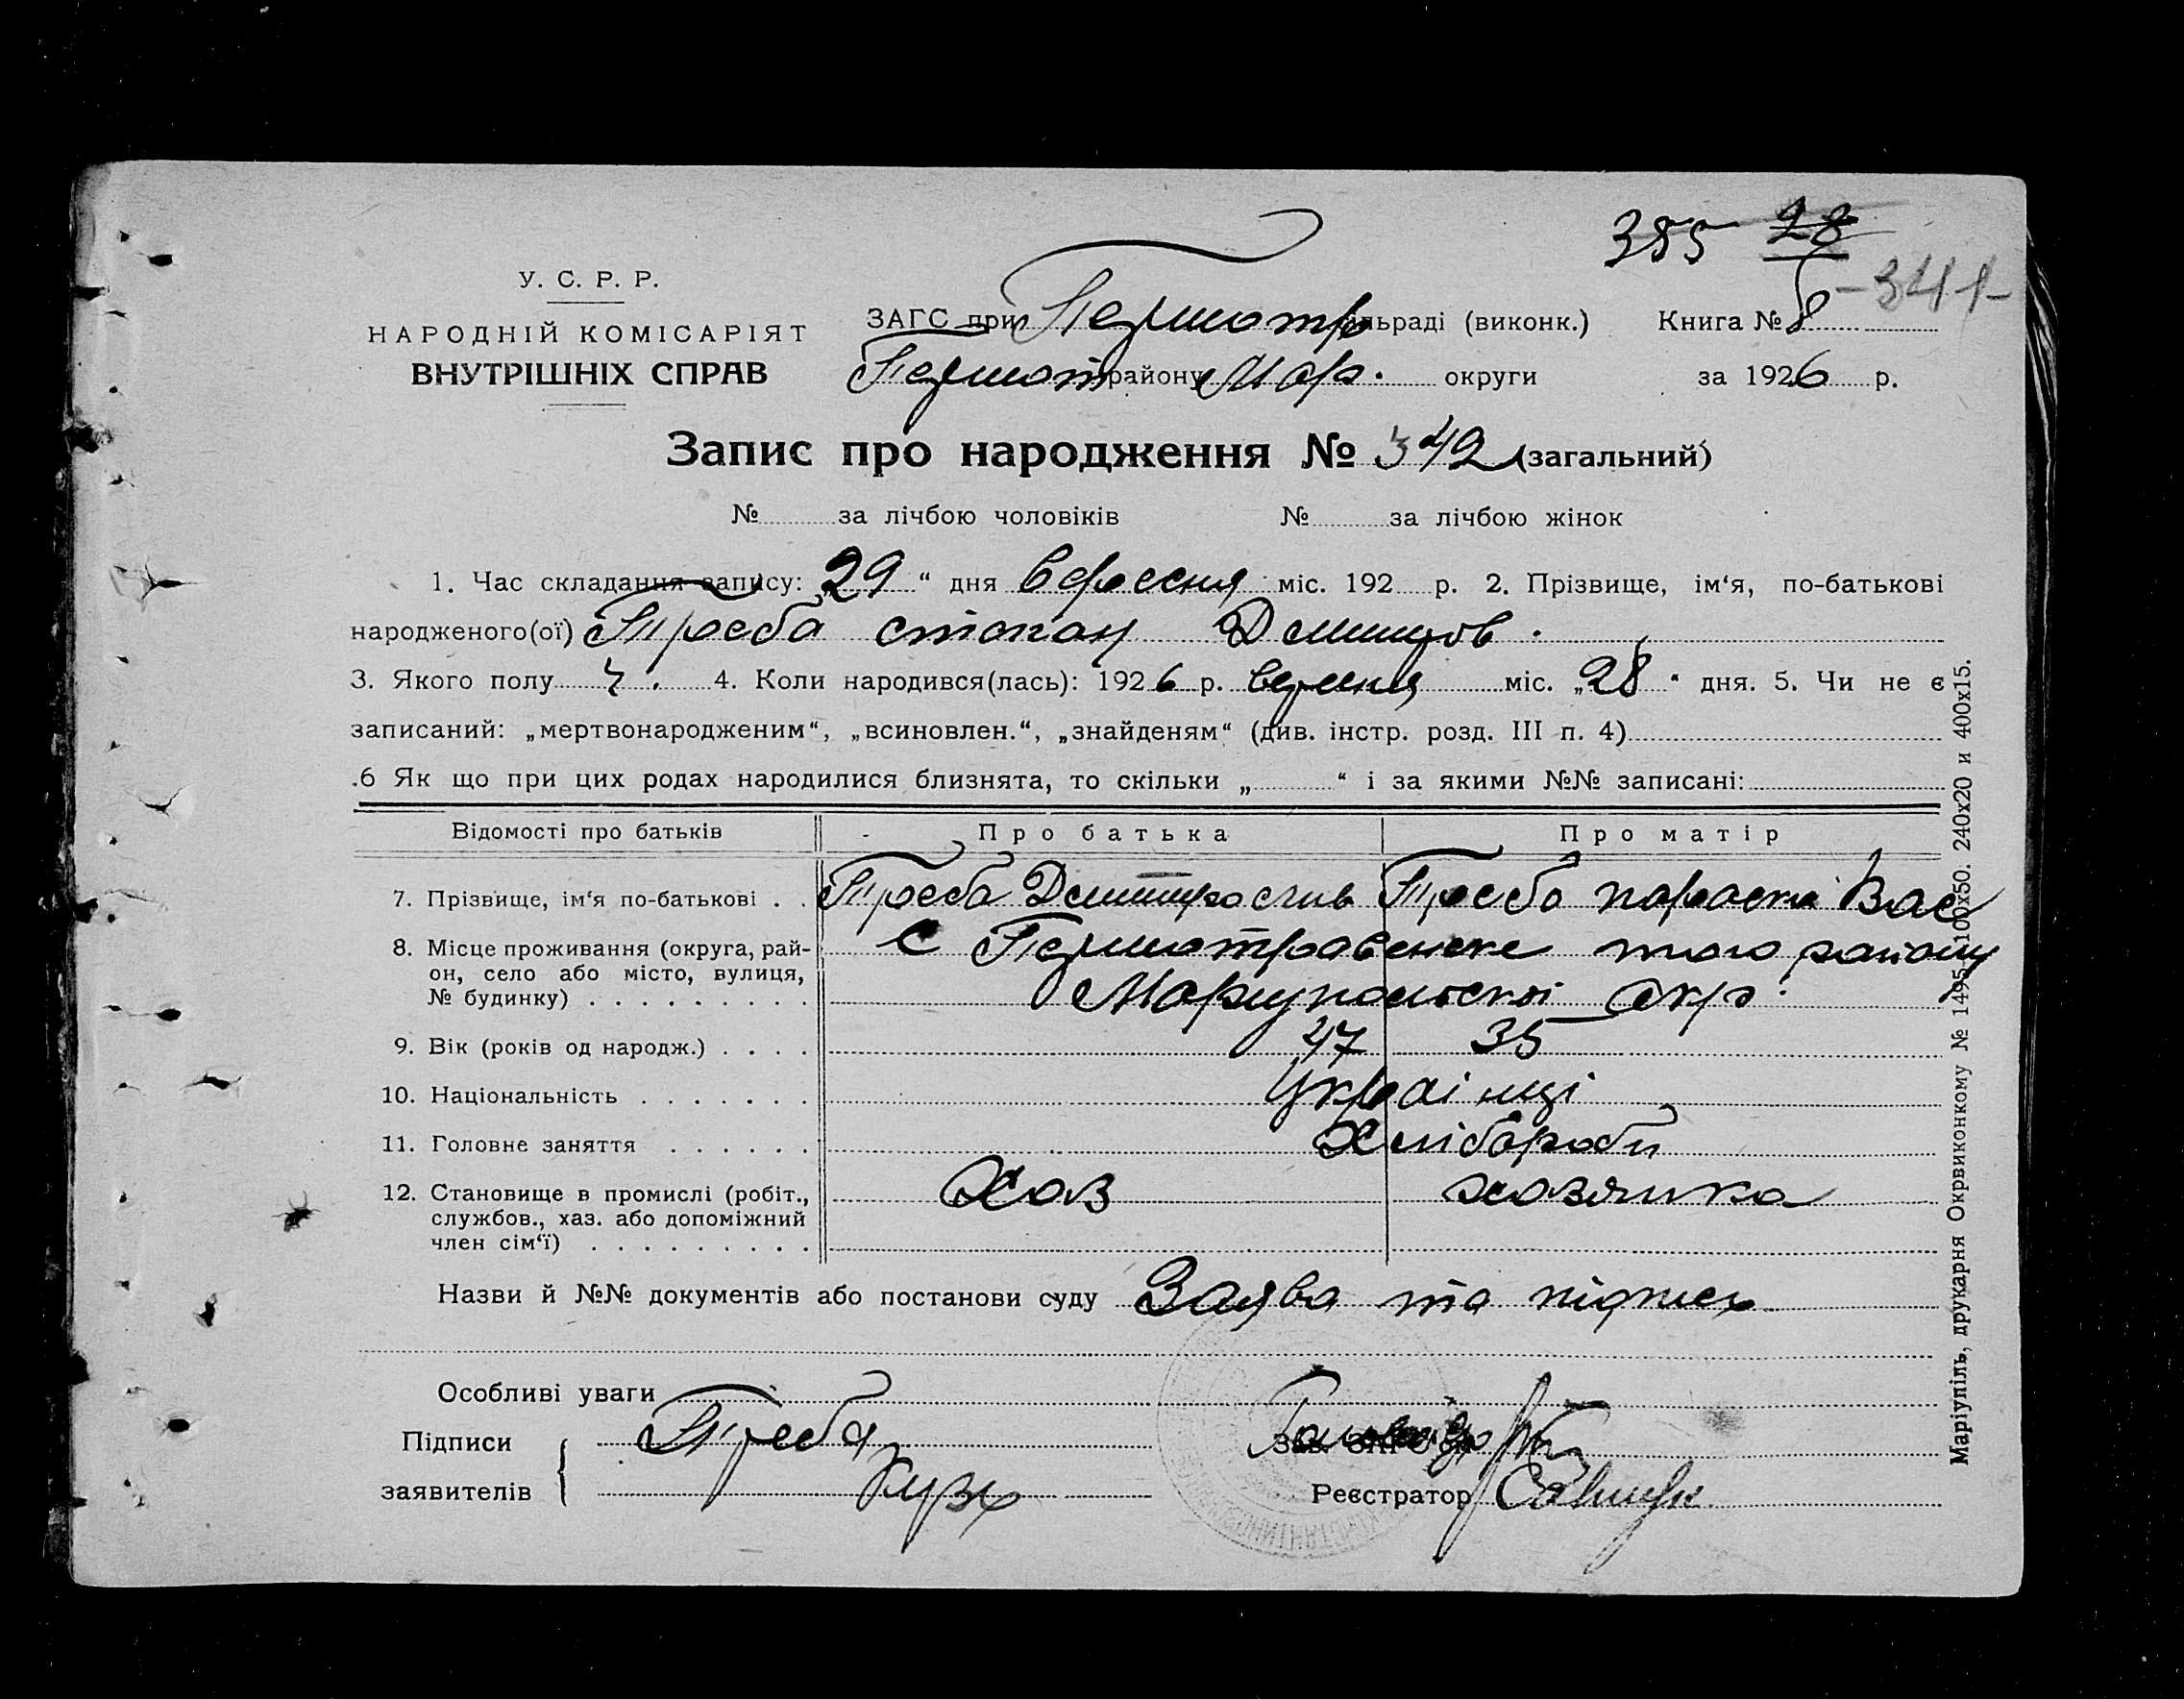 355 28
-341-
У. С. Р. Р.
НАРОДНІЙ КОМІСАРІЯТ
ВНУТРІШНІХ СПРАВ
ЗАГС при Першотр сільраді (виконк.) Книга № 8
Першот району Мар. округи за 1926 р.
Запис про народження № 342 (загальний)
№ за лічбою чоловіків № за лічбою жінок
1. Час складання запису: „29“ дня вересня міс. 192 р. 2. Прізвище, ім‘я, по-батькові
народженого(ої) Треба стіпан Дмитров.
3. Якого полу ч. 4. Коли народився(лась): 1926 р. вересня міс. „28“ дня. 5. Чи не є
записаний: „мертвонародженим“, „всиновлен.“, „знайденям“ (див. інстр. розд. III п. 4)
.6 Як що при цих родах народилися близнята, то скільки „ “ і за якими №№ записані:
Відомості про батьків Про батька Про матір
7. Прізвище, ім‘я по-батькові . . Треба Дмитро Треба параска Вас
8. Місце проживання (округа, рай-
он, село або місто, вулиця,
№ будинку) . . . . . . . . .
с Першотравенське того району
Маріупольскоі Окр.
9. Вік (років од народж.) . . . . 47 35
10. Національність . . . . . . . Украінці
11. Головне заняття . . . . . . Хлібороби
12. Становище в промислі (робіт.,
службов., хаз. або допоміжний
член сім‘ї) . . . . . . . . .
Хаз хазяика
Назви й №№ документів або постанови суду Заява та підпись
Особливі уваги
Підписи
заявителів
Треба
Зав. ЗАГС'ом
Реєстратор
Маріупіль, друкарня Окрвиконкому № 1495-100х50. 240х20 и 400х15.